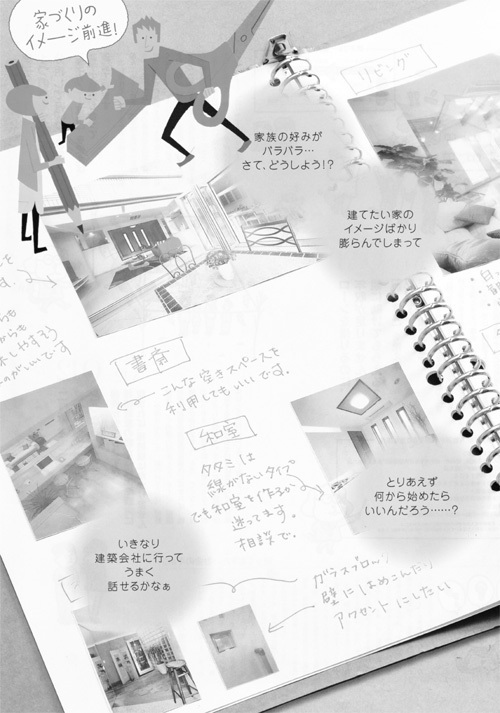 家づくりの
イメージ前進!
リビング
家族の好みが
バラバラ…
さて、どうしよう!?
建てたい家の
イメージばかり
膨らんでしまって
書斎
こんな空きスペースを
利用してもいいです。
和室
タタミは
縁がないタイプ
でも和室を作るか
迷ってます。
相談で。
とりあえず
何から始めたら
いいんだろう……?
いきなり
建築会社に行って
うまく
話せるかなぁ
ガラスブロック
壁にはめこんだり
アクセントにしたい